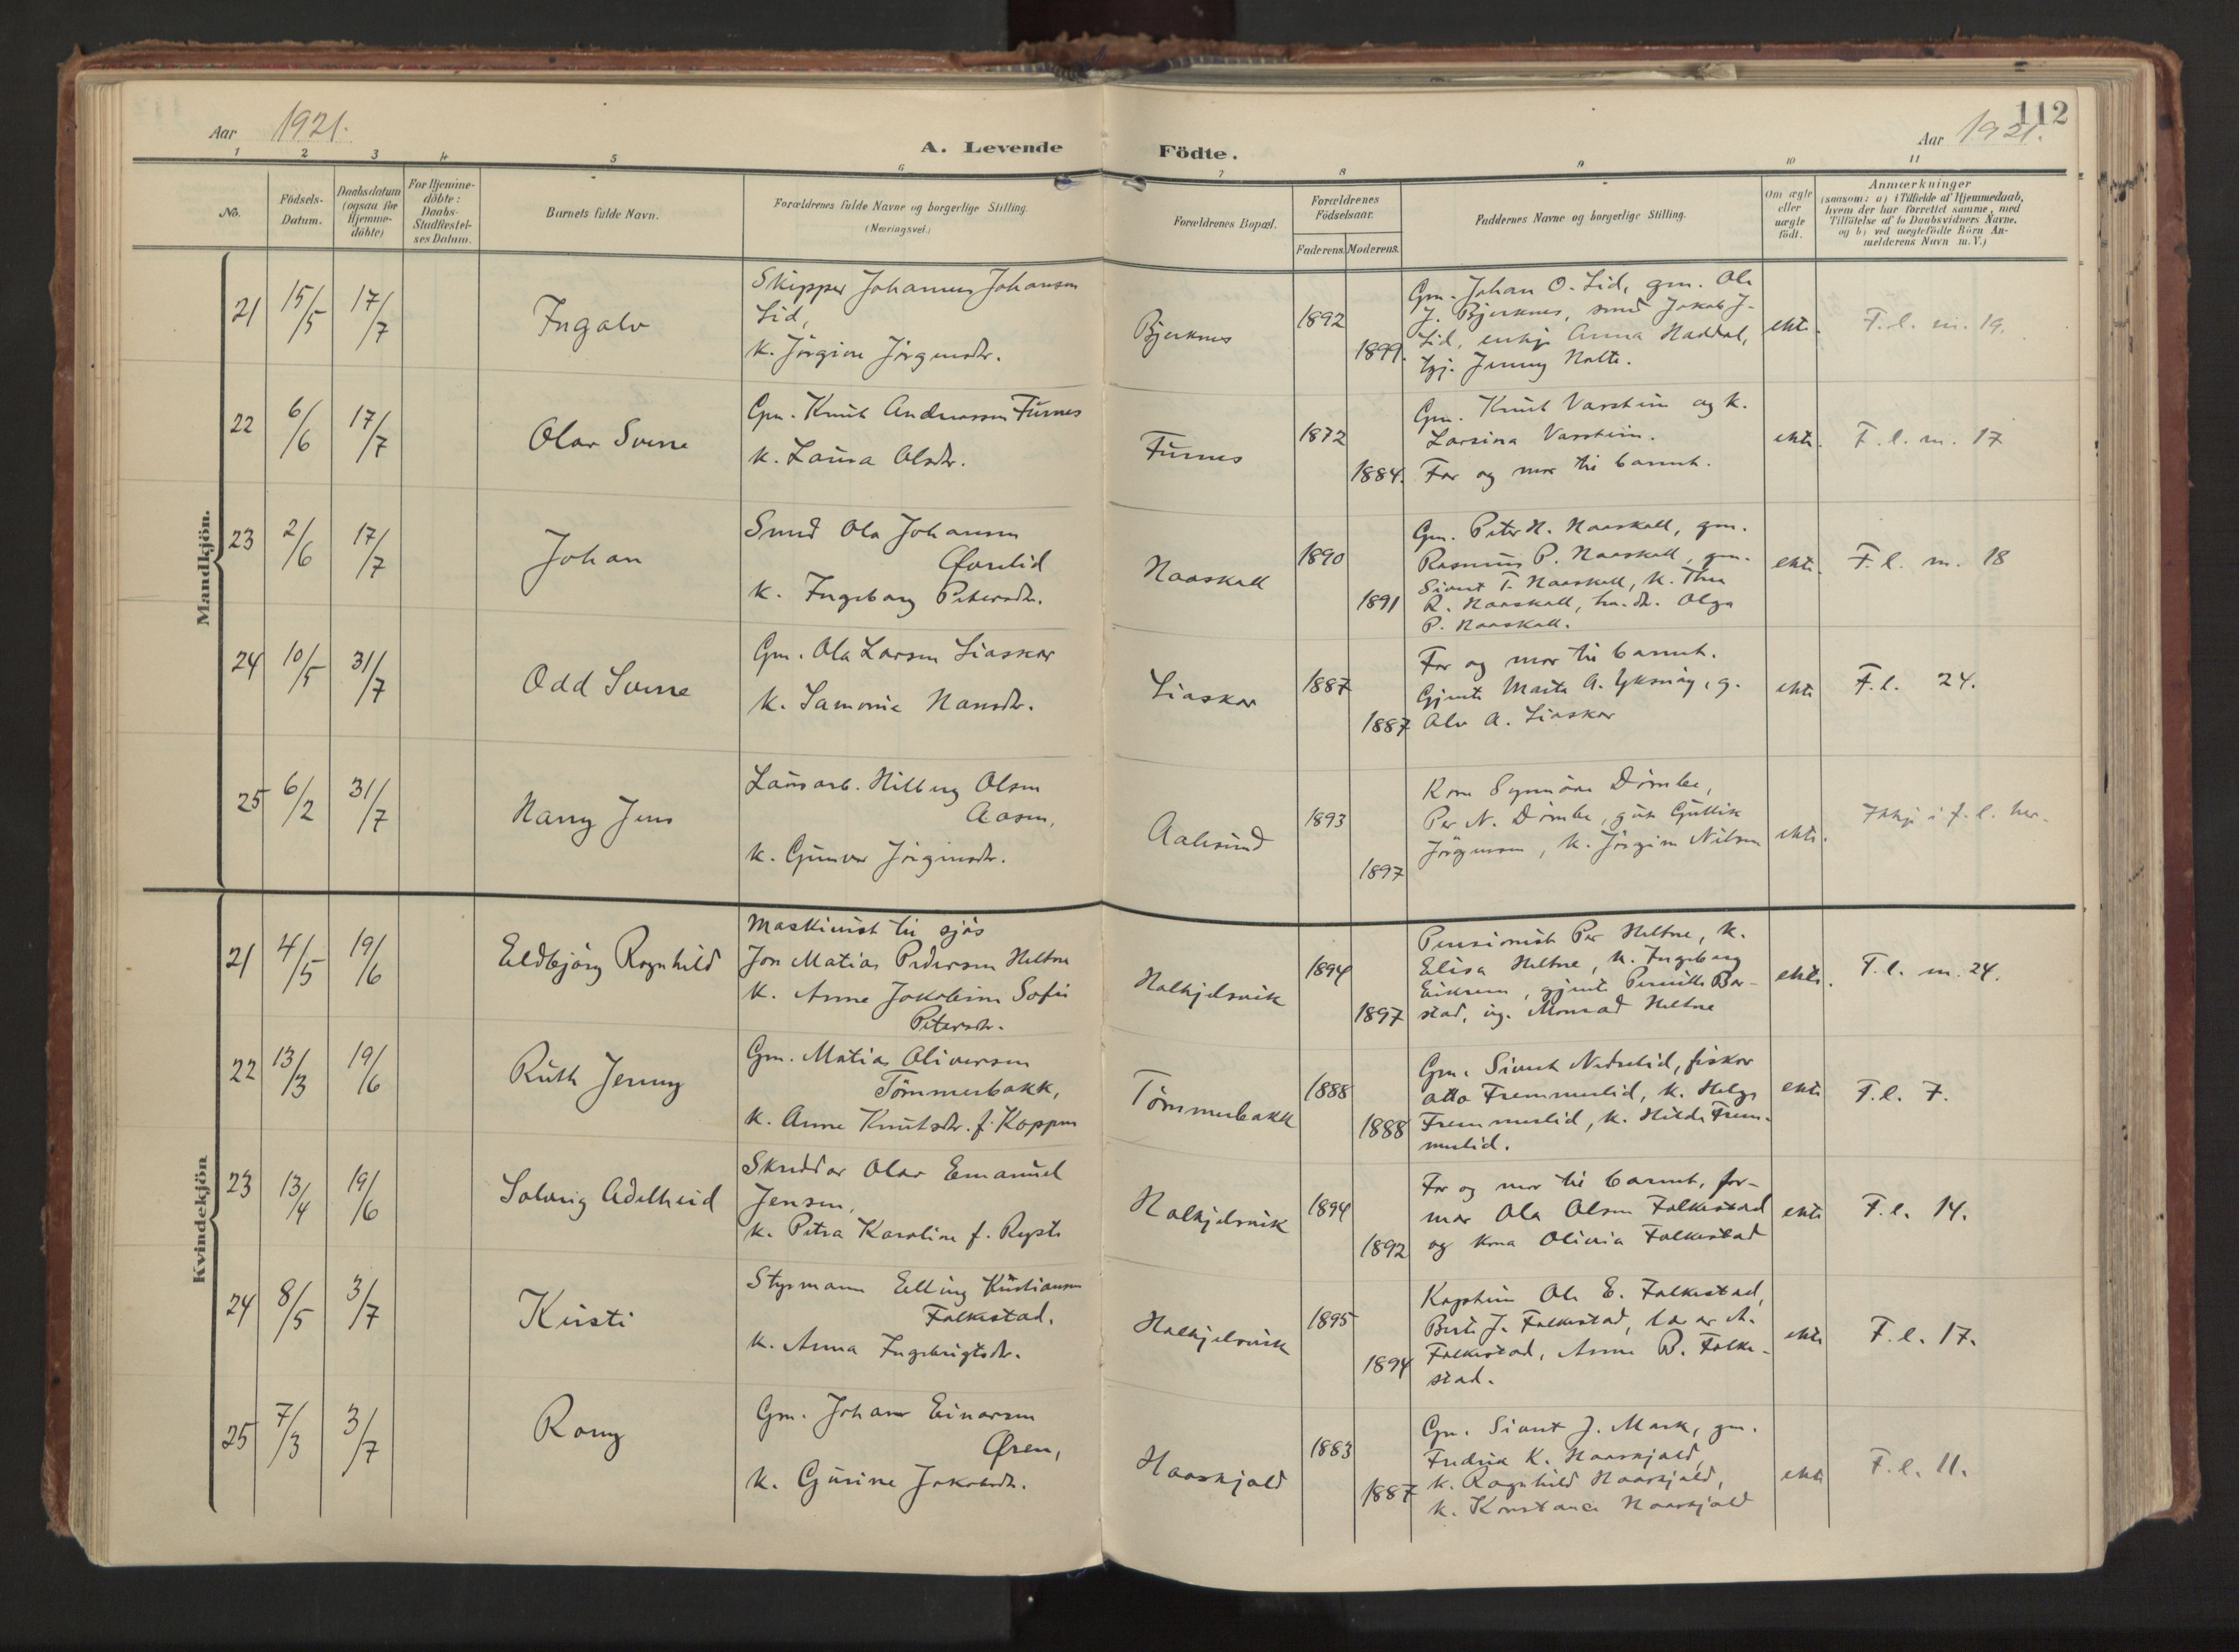 112
Aar 1921.
Aar 1921.
A. Levende Födte.
1 2 3 4 5 6 7 8 9 10 11
No.
Födsels-
Datum.
Daabsdatum
(ogsaa for
Hjemme-
döbte)
For Hjemme-
döbte:
Daabs-
Stadfæstel-
ses Datum.
Barnets fulde Navn.
Forældrenes fulde Navne og borgerlige Stilling.
(Næringsvei.)
Forældrenes Bopæl.
Forældrenes
Födselsaar.
Faderens. Moderens.
Faddernes Navne og borgerlige Stilling.
Om ægte
eller
uægte
födt.
Anmærkninger
(saasom: a) i Tilfælde af Hjemmedaab,
hvem der har forrettet samme, med
Tilföielse af to Daabsvidners Navne,
og b) ved uægtefödte Börn An-
melderens Navn m. V.)
Mandkjön.
21 15/5 17/7
Ingalv
Skipper Johannes Johansen
Lid,
k. Jörgine Jörgensdr.
Bjerknes
1892
1899.
Gm. Johan O. Lid, gm. Ole
J. Bjerknes, smed Jakob J.
Lid, enkje Anna Haddal,
tgj. Jenny Nalte.
ekte.
F. l. m. 19.
22 6/6 17/7
Olav Sverre
Gm. Knut Andreassen Furnes
k. Laura Olsdr.
Furnes
1872
1884.
Gm. Knut Vassteim og k.
Larsina Vassteim.
Far og mor til barnet.
ekte.
F. l. m. 17
23 2/6 17/7
Johan
Smed Ola Johansen
Øvrelid
k. Ingeborg Petersdr.
Naaskall
1890
1891
Gm. Peter N. Naaskall, gm.
Rasmus P. Naaskall, gm.
Sivert T. Naaskall, k. Thea
R. Naaskall, hu. dr. Olga
P. Naaskall.
ekte.
F. l. m. 18
24 10/5 31/7
Odd Sverre
Gm. Ola Larsen Liaskar
k. Samonie Hansdr.
Liaskar
1887
1887
Far og mor til barnet.
Gjente Marta A. Yksnöy, g.
Alv A. Liaskar
ekte
F. l. 24.
25 6/2 31/7
Harry Jens
Lausarb. Hilberg Olsen
Aasen,
k. Gunvor Jörgensdr.
Aalesund
1893
1897
Kone Synnöve Dimbe,
Per N. Dimbe, gut Gullik
Jörgensen, k. Jörgine Nilsen
ekte.
Ikkje i f. l. her.
Kvindekjön
21 4/5 19/6
Eldbjörg Ragnhild
Maskinist til sjös
Jon Matias Pedersen Heltne
k. Anne Jakobine Sofie
Petersdr.
Halkjelsvik
1894
1897
Pensionist Per Heltne, k.
Elisa Heltne, k. Ingeborg
Eikrem, gjente Pernille Bar-
stad, ug. Monrad Heltne
ekte.
F. l. m. 24.
22 13/3 19/6
Ruth Jenny
Gm. Matias Oliversen
Tömmerbakk,
k. Anne Knutsdr. f. Koppen
Tömmerbakk
1888
1888
Gm. Sivert Nedrelid, fiskar
Otto Fremmerlid, k. Helga
Fremmerlid, k. Hilda Frem-
merlid.
ekte
F. l. 7.
23 13/4 19/6
Solveig Adelheid
Skreddar Olav Emanuel
Jensen,
k. Petra Karoline f. Ryste
Halkjelsvik
1894
1892
Far og mor til barnet, for-
mar Ola Olsen Falkestad
og kona Olivia Falkestad
ekte
F. l. 14.
24 8/5 3/7
Kirsti
Styrmann Elling Kristiansen
Falkestad.
k. Anna Ingebrigtsdr.
Halkjelsvik
1895
1894
Kaptein Ole E. Falkestad,
Berte J. Falkestad, A.
Falkestad, Anne B. Falke-
stad.
ekte
F. l. 17.
25 7/3 3/7
Rony
Gm. Johan Einarsen
Øren,
k. Gurine Jakobsdr.
Haaskjold
1883
1887
Gm. Sivert J. Mark, gm.
Fredrik K. Haaskjold,
k. Ragnhild Haaskjold,
k. Konstance Haaskjold
ekte
F. l. 11.